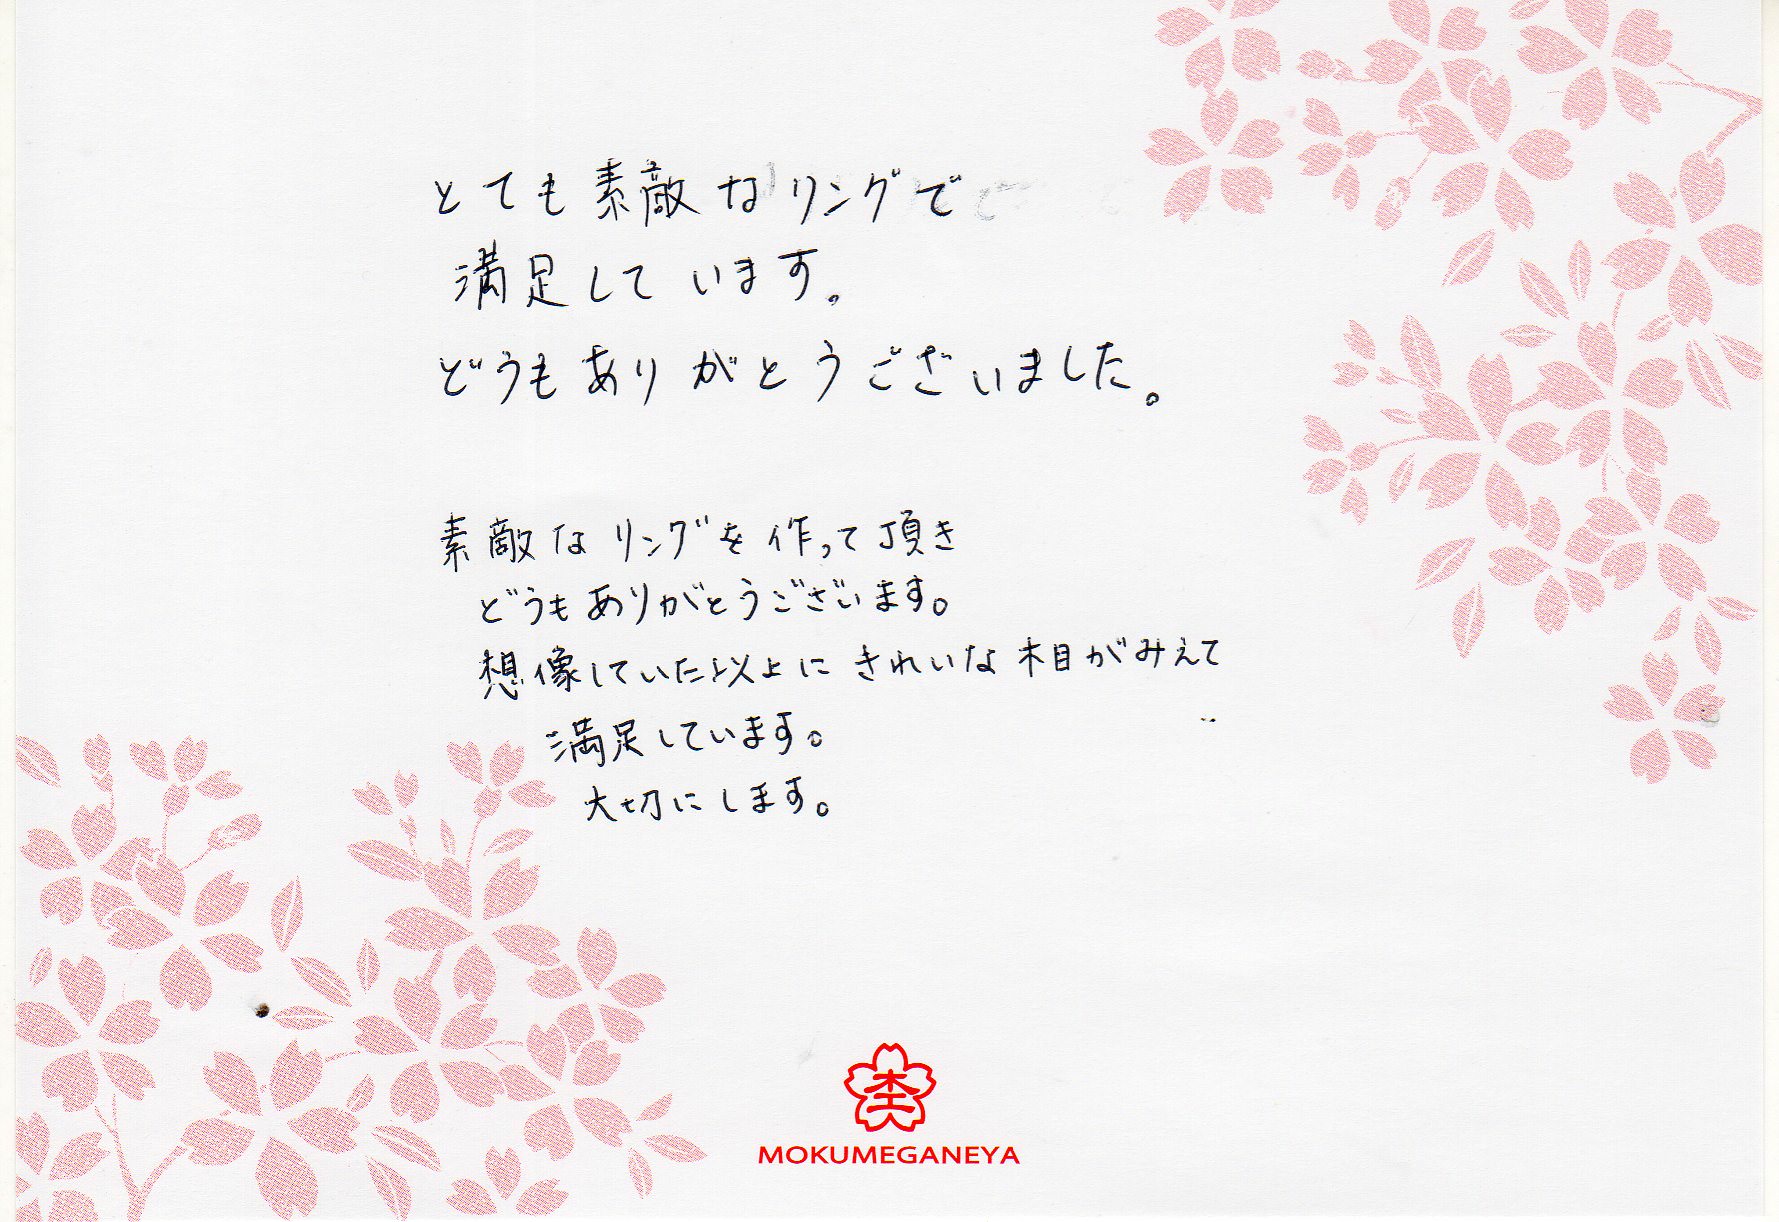 とても素敵なリングで
満足しています。
どうもありがとうございました。
素敵なリングを作って頂き
どうもありがとうございます。
想像していた以上にきれいな木目がみえて
満足しています。
大切にします。
MOKUMEGANEYA